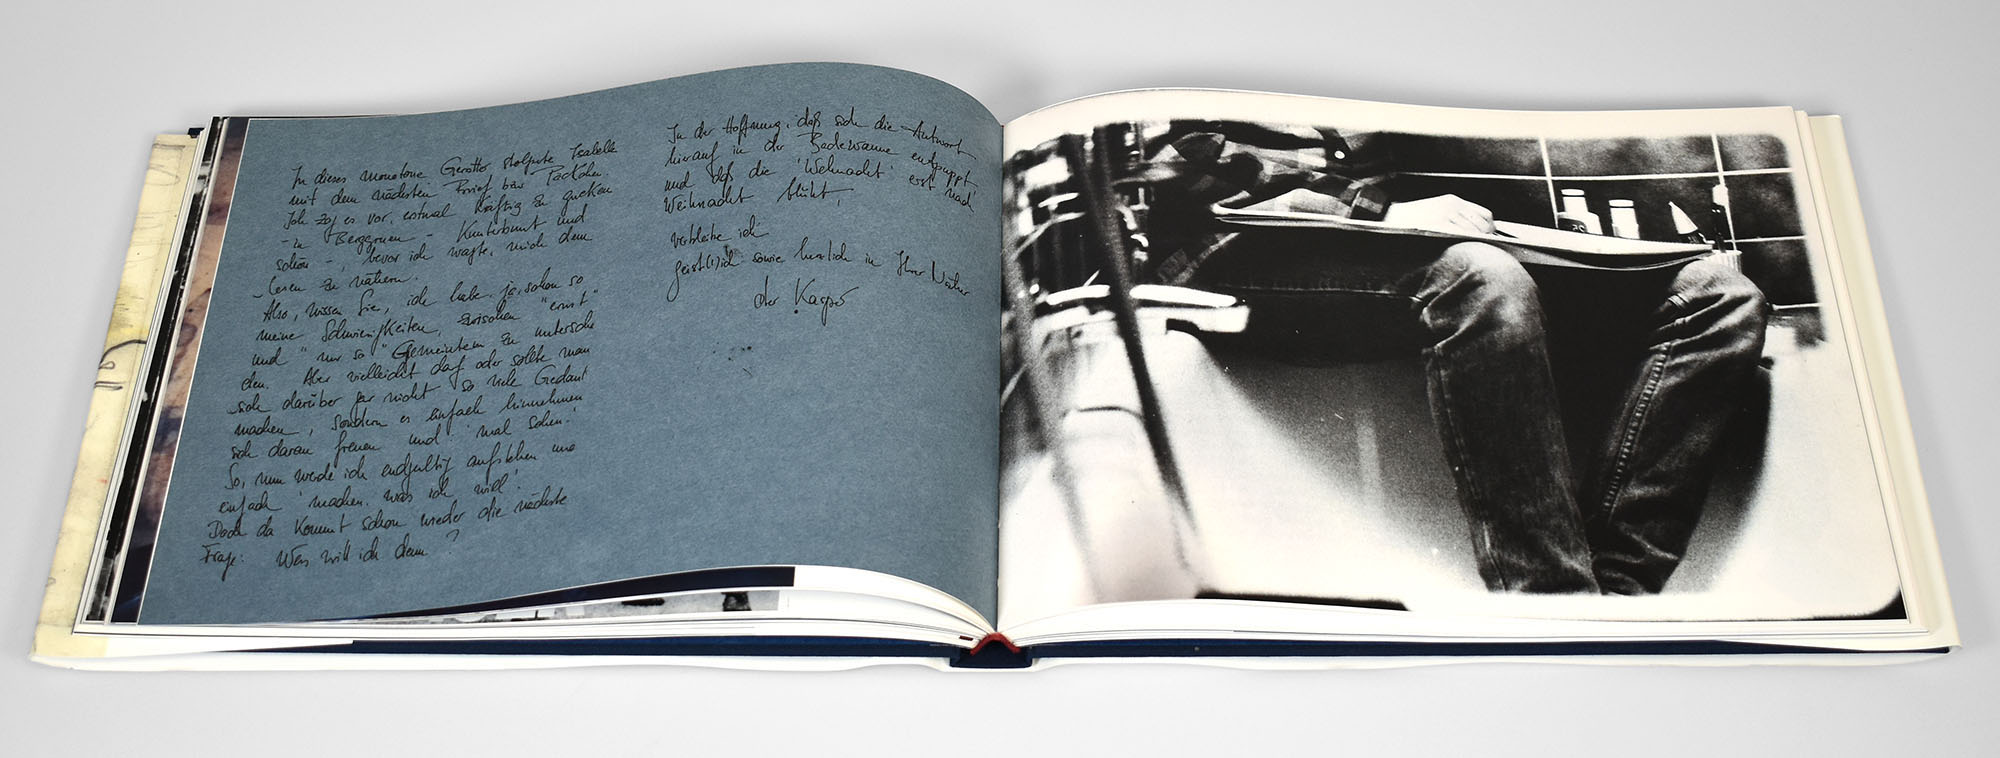 In dieses monotone Gerotter stolperte Isabelle
mit dem nächsten Brief bzw. Päckchen.
Ich zog es vor, erstmal kräftig zu gucken
- in Bergg - Kunterbunt und
schön -, bevor ich wagte, mich dem
Lesen zu nähern.
Also, wissen Sie, ich habe ja schon so
meine Schwierigkeiten, zwischen "ernst"
und "nur so" Gemeintem zu untersche
den. Aber vielleicht darf oder sollte man
sich darüber gar nicht so viele Gedank
machen, sondern es einfach hinnehmen
sich daran freuen und 'mal sehen'.
So, nun werde ich endgültig aufstehen und
einfach 'machen, was ich will'.
Doch da kommt schon wieder die nächste
Frage: Was will ich denn?
In der Hoffnung, daß sich die Antwort
hierauf in der Badewanne entpuppt
und daß die 'Wehnacht' erst nach
Weihnacht blüht,
verbleibe ich
geist(l)ich sowie herzlich in Ihrer Nähe
der Kasper